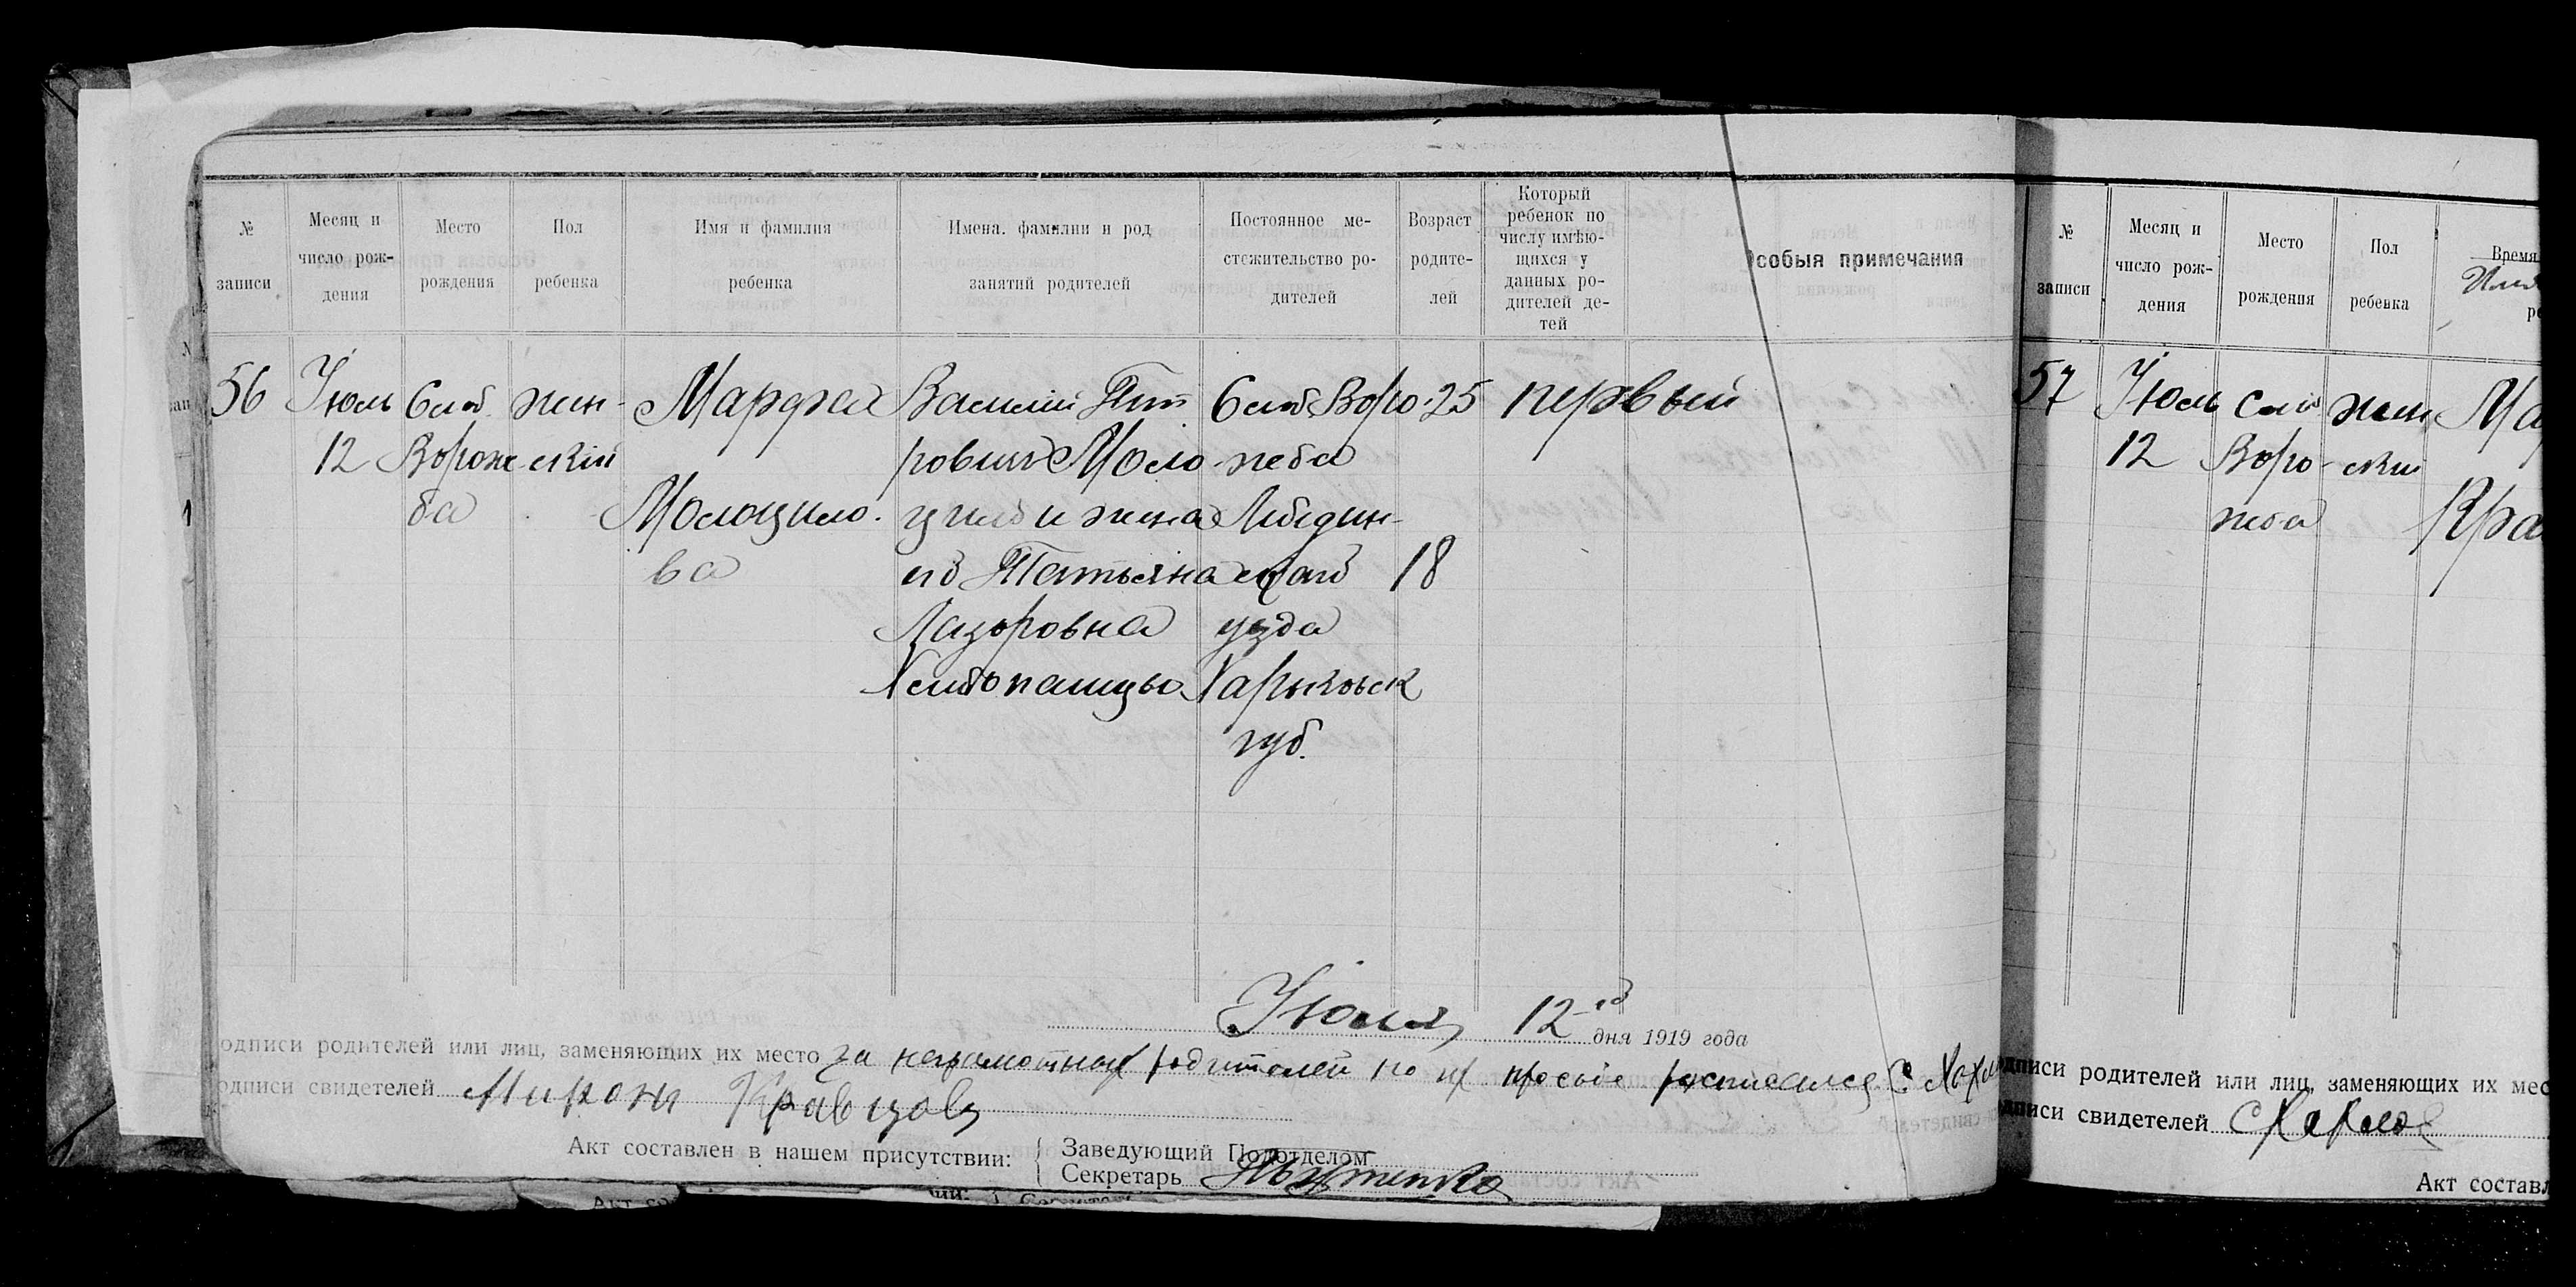 № записи
Месяц и число рождения
Место рождения
Пол ребенка
Имя и фамилия ребенка
Имена. фамилии и род занятий родителей
Постоянное местожительство родителей
Возраст родителей
Который ребенок по числу имѣющихся у данных родителей детей
Особыя примечания
56
Июль
12
Слоб.
Ворож-
ба
жен-
ский
Марфа
Молоцило-
ва
Василий Пет
рович Моло-
цилов и жена
его Татьяна
Лазоровна
Хлебопашцы
Слоб. Воро-
жеба
Лебедин-
скаго
уезда
Харьковск
губ.
25
18
первый
Июля 12-го дня 1919 года
одписи родителей или лиц, заменяющих их место за неграмотных родителей по их просьбе росписался С.
одписи свидетелей Мирон Кравцов
Акт составлен в нашем присутствии:
Заведующий Подотделом
Секретарь
№ записи
Месяц и число рождения
Место рождения
Пол ребенка
Время
57
Июль
12
Слоб
Воро-
жеба
жен
ский
Ма
Кра
дписи родителей или лиц, заменяющих их мес
дписи свидетелей
Акт составл